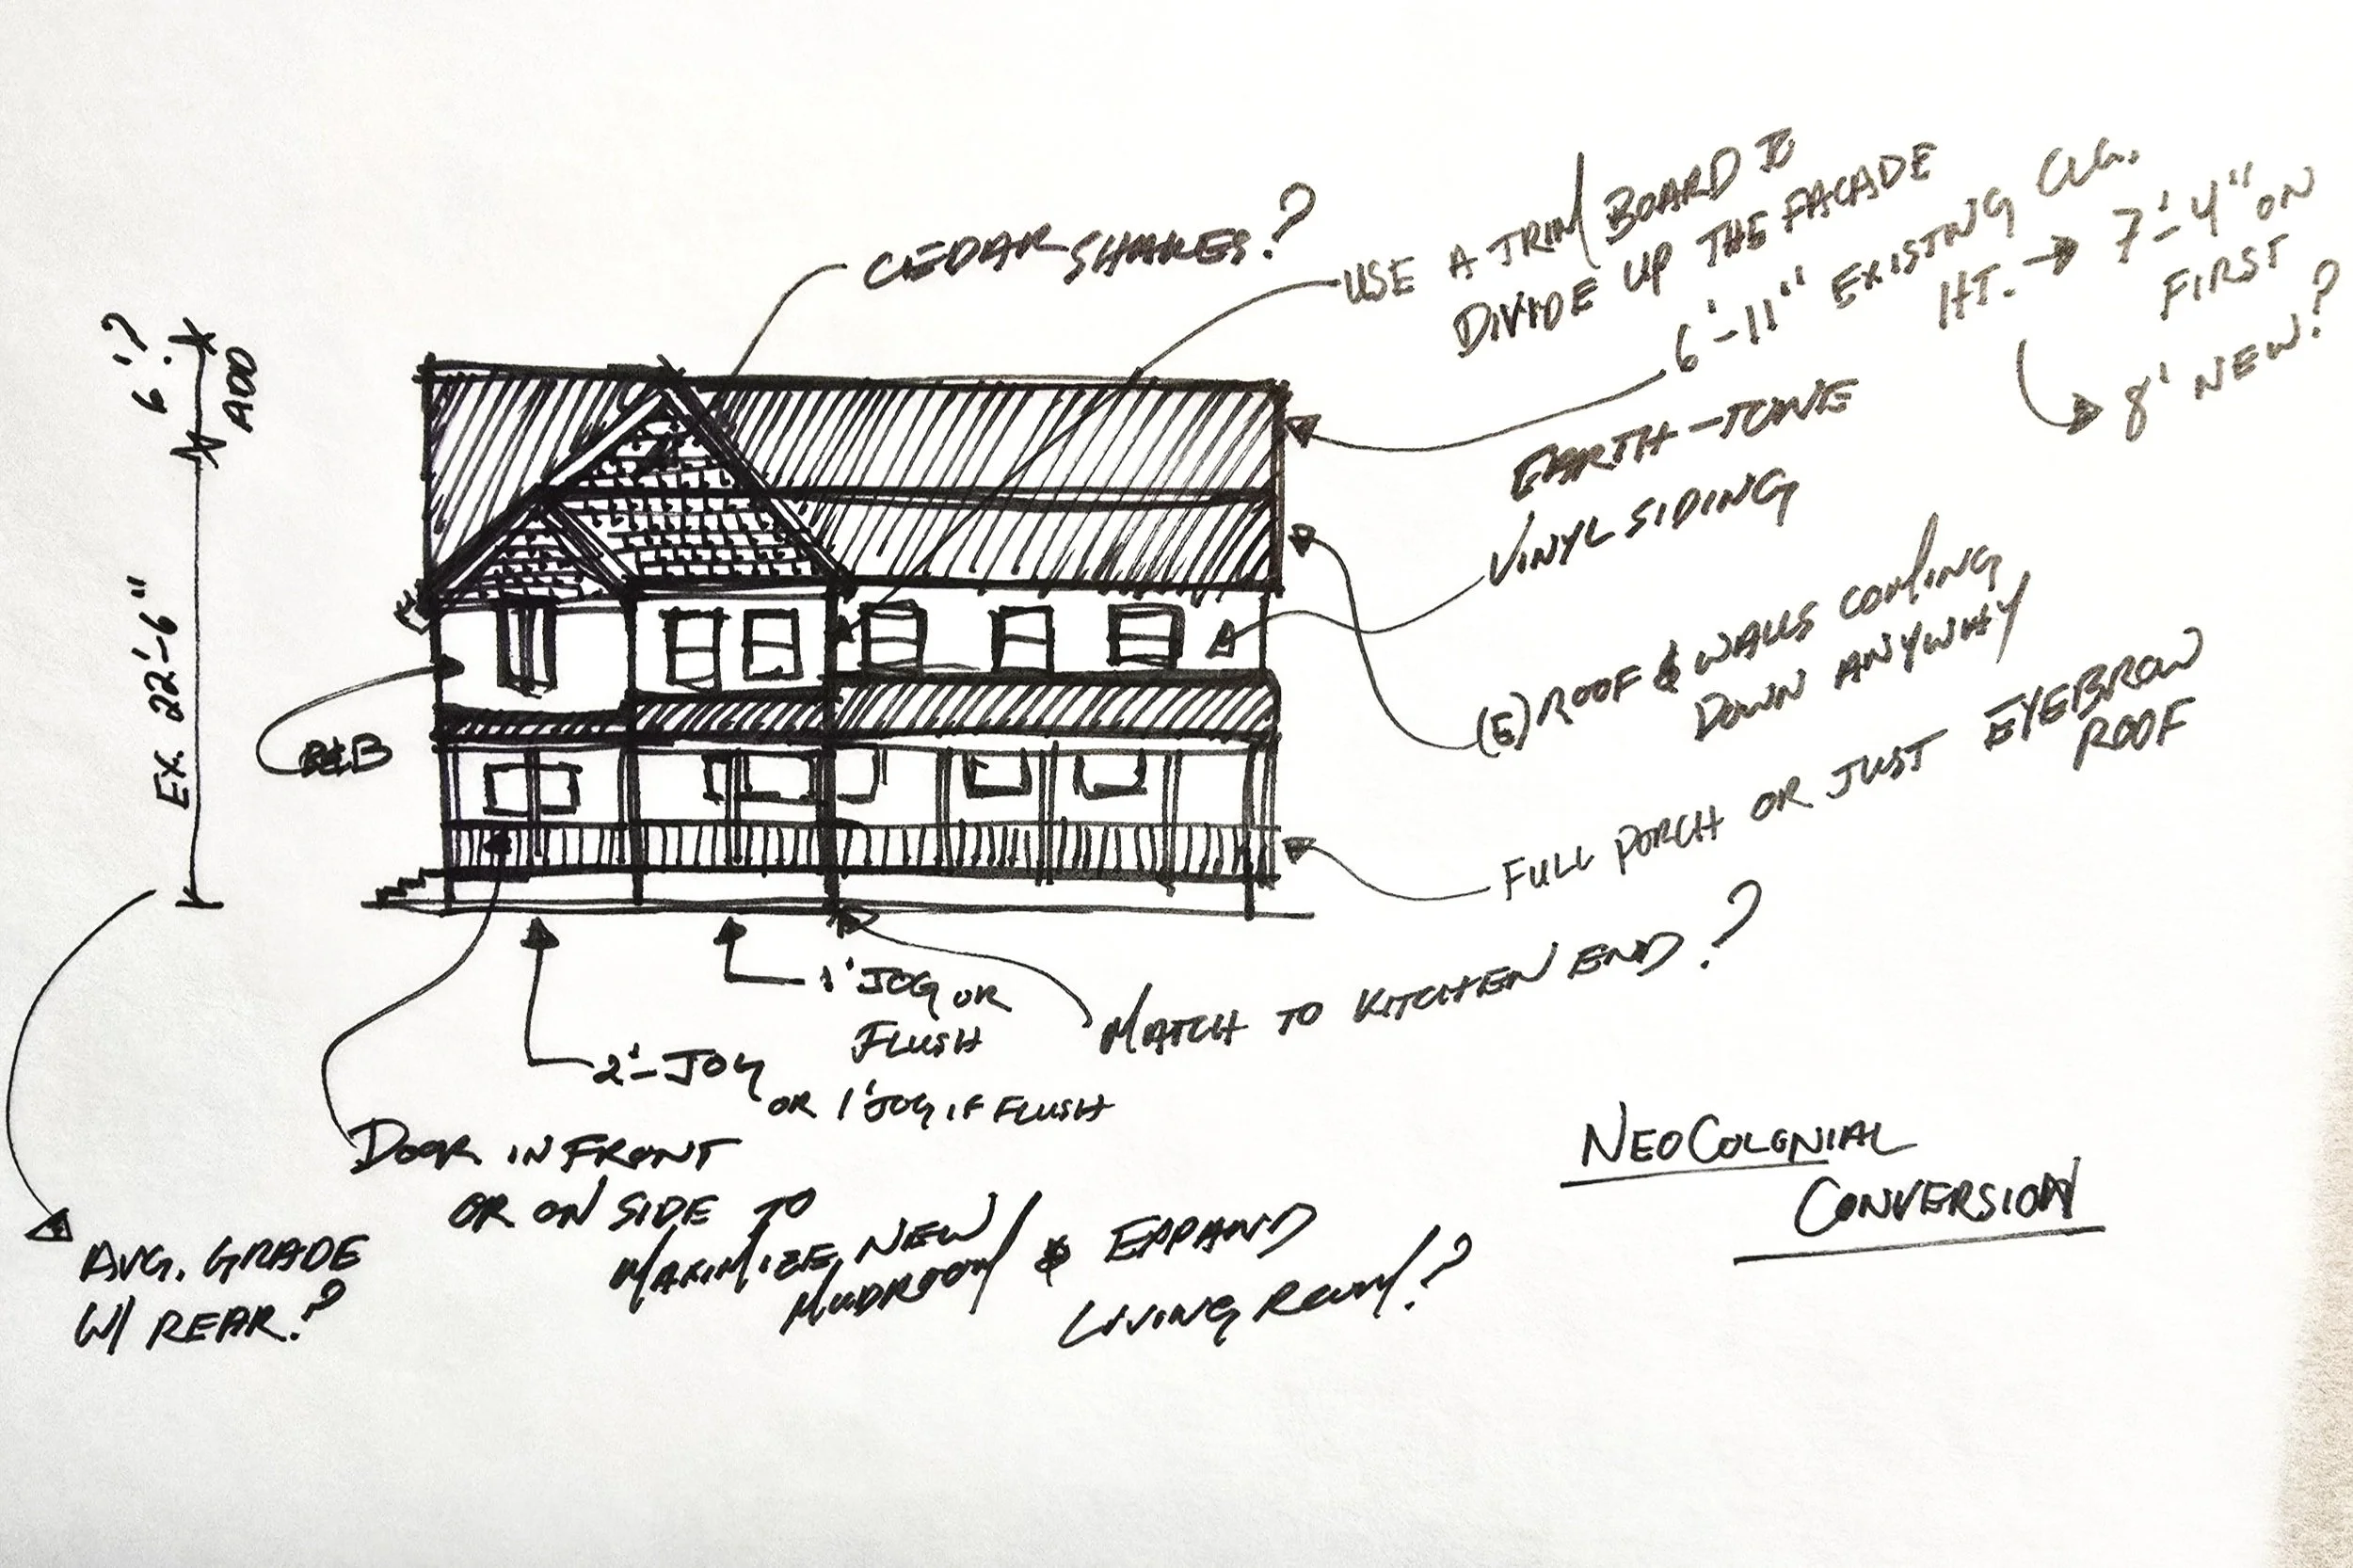 CEDAR SHAKES?
USE A TRIM BOARD TO
DIVIDE UP THE FACADE
6'-11" EXISTING CLG.
HT. → 7'-4" ON
FIRST
8' NEW?
EARTH-TONE
VINYL SIDING
(E) ROOF & WALLS COMING
DOWN ANYWAY
FULL PORCH OR JUST EYEBROW
ROOF
MATCH TO KITCHEN END?
1' JOG OR
FLUSH
2'-JOG
OR 1' JOG IF FLUSH
DOOR IN FRONT
OR ON SIDE TO
MAXIMIZE NEW
MUDROOM & EXPAND
LIVING ROOM?
AVG. GRADE
W/ REAR?
B&B
EX. 22'-6"
6'?
ADD
NEOCOLONIAL
CONVERSION